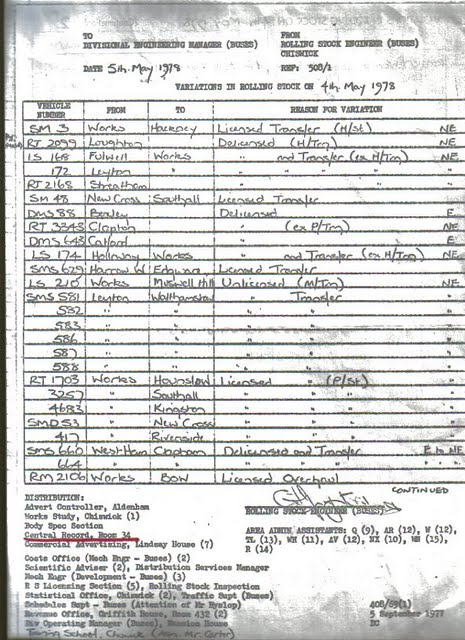 TO FROM
DIVISIONAL ENGINEERING MANAGER (BUSES) ROLLING STOCK ENGINEER (BUSES)
CHISWICK
DATE 5th. May 1978 REF: 508/1
VARIATIONS IN ROLLING STOCK ON 4th. May 1978
VEHICLE NUMBER FROM TO REASON FOR VARIATION
SM 3 Works Hackney Licensed Transfer (H/St) NE
RT 2099 Loughton Delicensed (H/Trn) NE
LS 168 Fulwell Works " and Transfer (ex H/Trn) NE
172 Leyton " " " " "
RT 2168 Streatham "
SM 48 New Cross Southall Licensed Transfer
DMS 88 Bexley Delicensed E
RT 3343 Clapton " (ex P/Trn) NE
DMS 643 Catford " E
LS 174 Holloway Works " and Transfer (ex H/Trn) NE
SMS 629 Harrow W Edgware Licensed Transfer
LS 210 Works Muswell Hill Unlicensed (M/Trn) NE
SMS 581 Leyton Walthamstow " Transfer
582 " " " "
583 " " " "
586 " " " "
587 " " " "
588 " " " "
RT 1703 Works Hounslow Licensed " (P/St)
3257 " Southall " " "
4683 " Kingston " " "
SMD 53 " New Cross " " "
417 " Riverside " " "
SMS 660 West Ham Clapham Delicensed and Transfer E to NE
664 " " " " " "
RM 2106 Works Bow Licensed Overhaul
CONTINUED
DISTRIBUTION:
Advert Controller, Aldenham ROLLING STOCK ENGINEER (BUSES)
Works Study, Chiswick (1)
Body Spec Section
Central Record, Room 34
Commercial Advertising, Lindsay House (7)
AREA ADMIN ASSISTANTS: Q (9), AR (12), W (12),
TL (13), WH (11), AV (12), NX (10), WN (15),
R (14)
Costs Office (Mech Engr - Buses) (2)
Scientific Adviser (2), Distribution Services Manager
Mech Engr (Development - Buses) (3)
R S Licensing Section (5), Rolling Stock Inspection
Statistical Office, Chiswick (2), Traffic Supt (Buses)
Schedules Supt - Buses (Attention of Mr Hyslop) 408/69(1)
Revenue Office, Griffith House, Room 432 (2) 5 September 1977
Div Operating Manager (Buses), Mansion House DC
Training School, Chiswick (Attn. Mr. Carter)